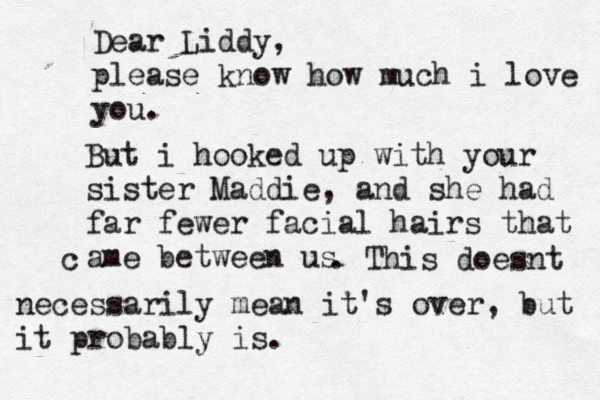 Dear Liddy,
please know how much i love
you.
But i hooked up with your
sister Maddie, and she had
far fewer facial hairs that
came between us. This doesnt
necessarily mean it's over, but
it probably is.